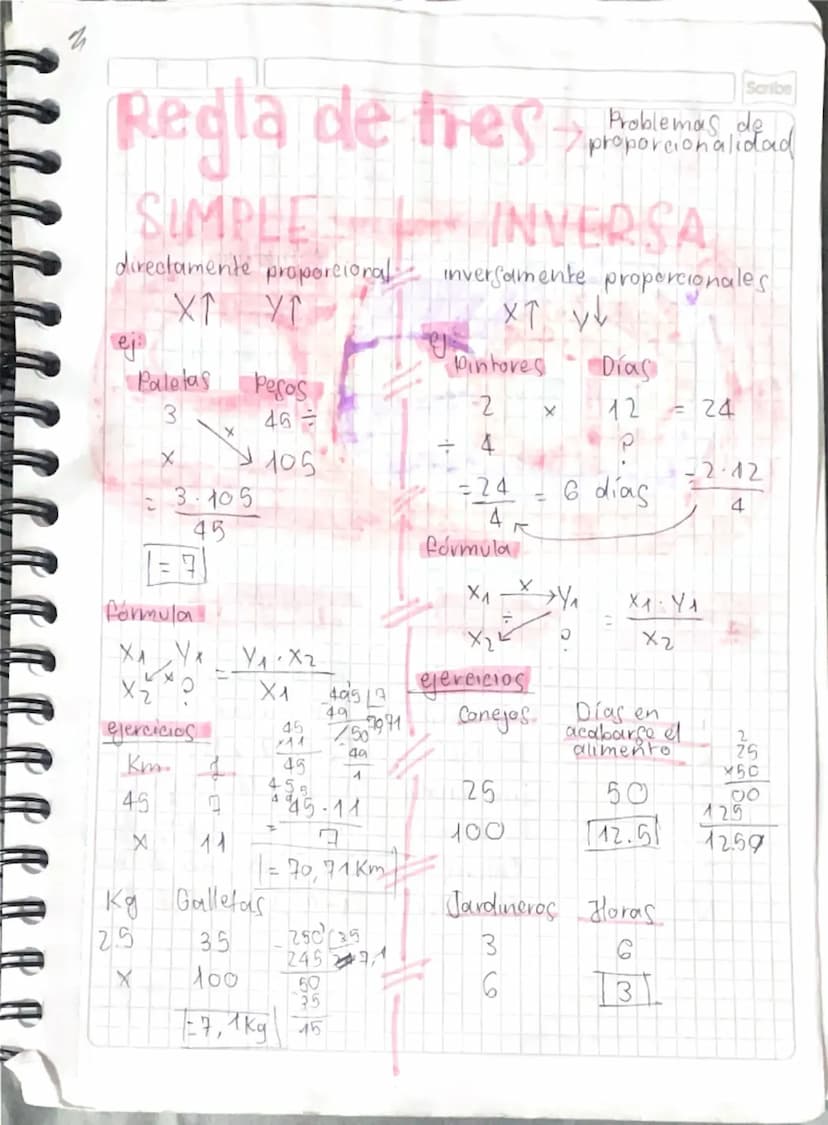 Scribe
Regla de tres → Problemas de
proporcionalidad
SIMPLE
directamente proporcional
X↑ Y↑
ej:
Paletas Pesos
3 x 45 ÷
x 105
= 3·105
45
= 7
fórmula
X1 Y1
X2 x ?
= Y1 · X2
X1
ejercicios
Km
45 7
x 11
45
x11
45
45
495
495 7
49 70,71
50
49
1
= 45·11
7
= 70,71 Km
Kg Galletas
2.5 35
x 100
250 35
245 7,1
50
35
15
= 7,1 Kg
INVERSA
inversamente proporcionales
X↑ Y↓
ej:
Pintores Días
2 x 12 = 24
÷ 4 ?
= 24
4
= 6 días
= 2·12
4
fórmula
X1 x Y1
÷
X2 ?
= X1 · Y1
X2
ejercicios
Conejos Días en
acabarse el
alimento
25 50
100 12.5
2
25
x50
00
125
1250
Jardineros Horas
3 6
6 3